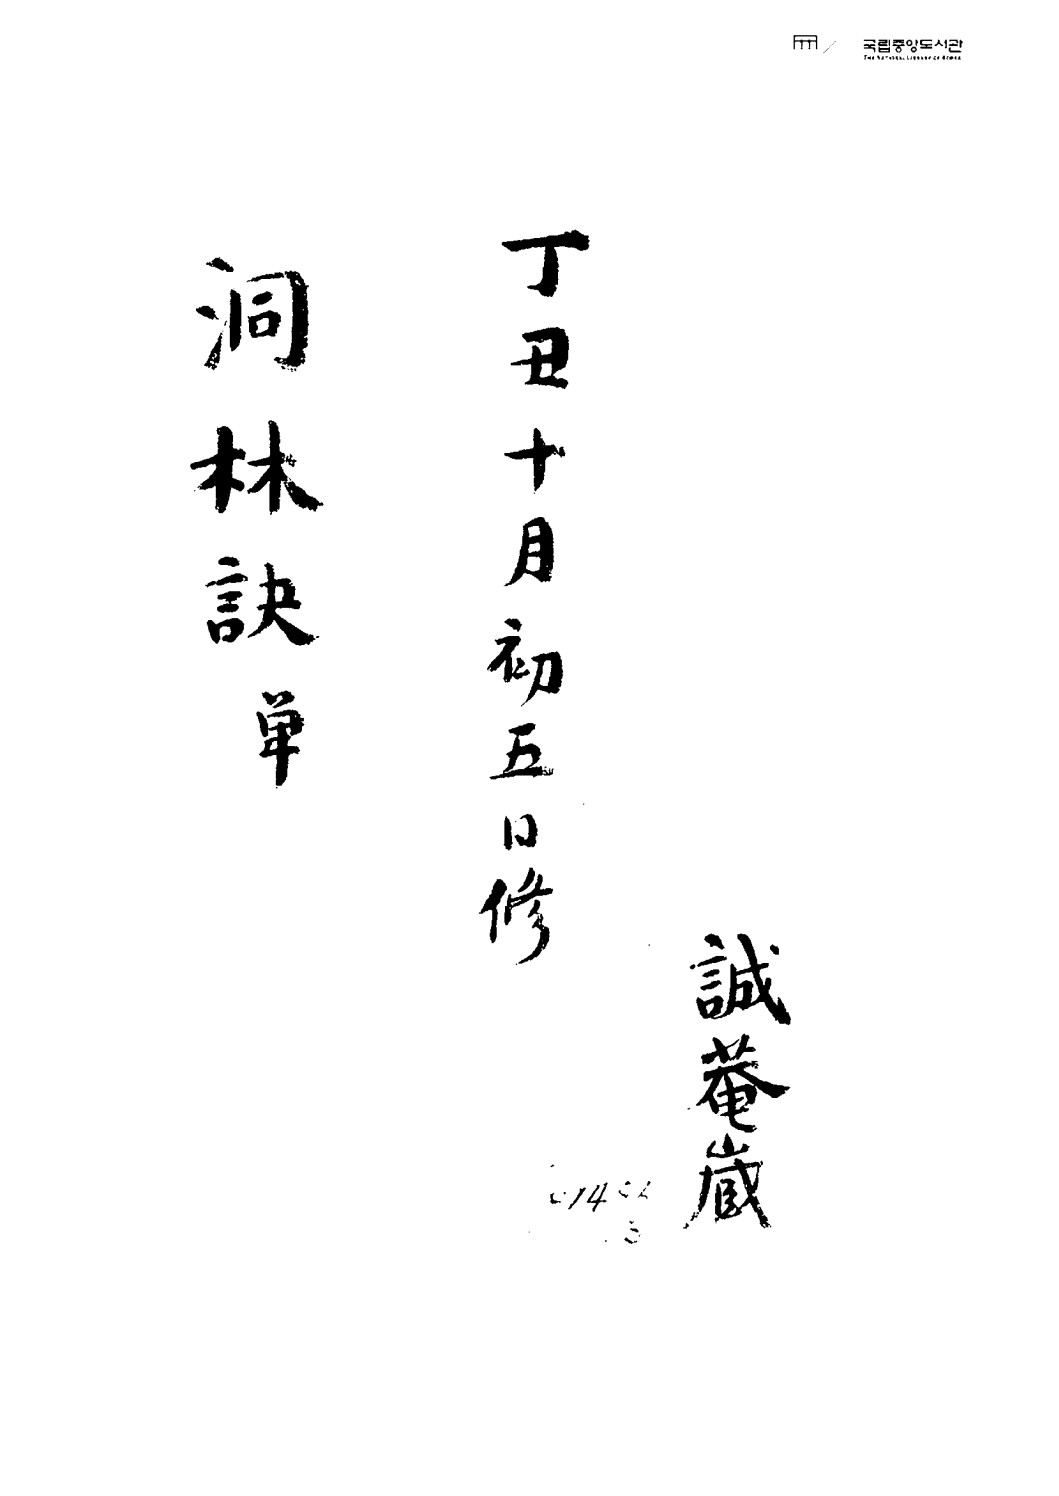 국립중앙도서관
THE NATIONAL LIBRARY OF KOREA
誠菴蔵
丁丑十月初五日修
洞林訣 単